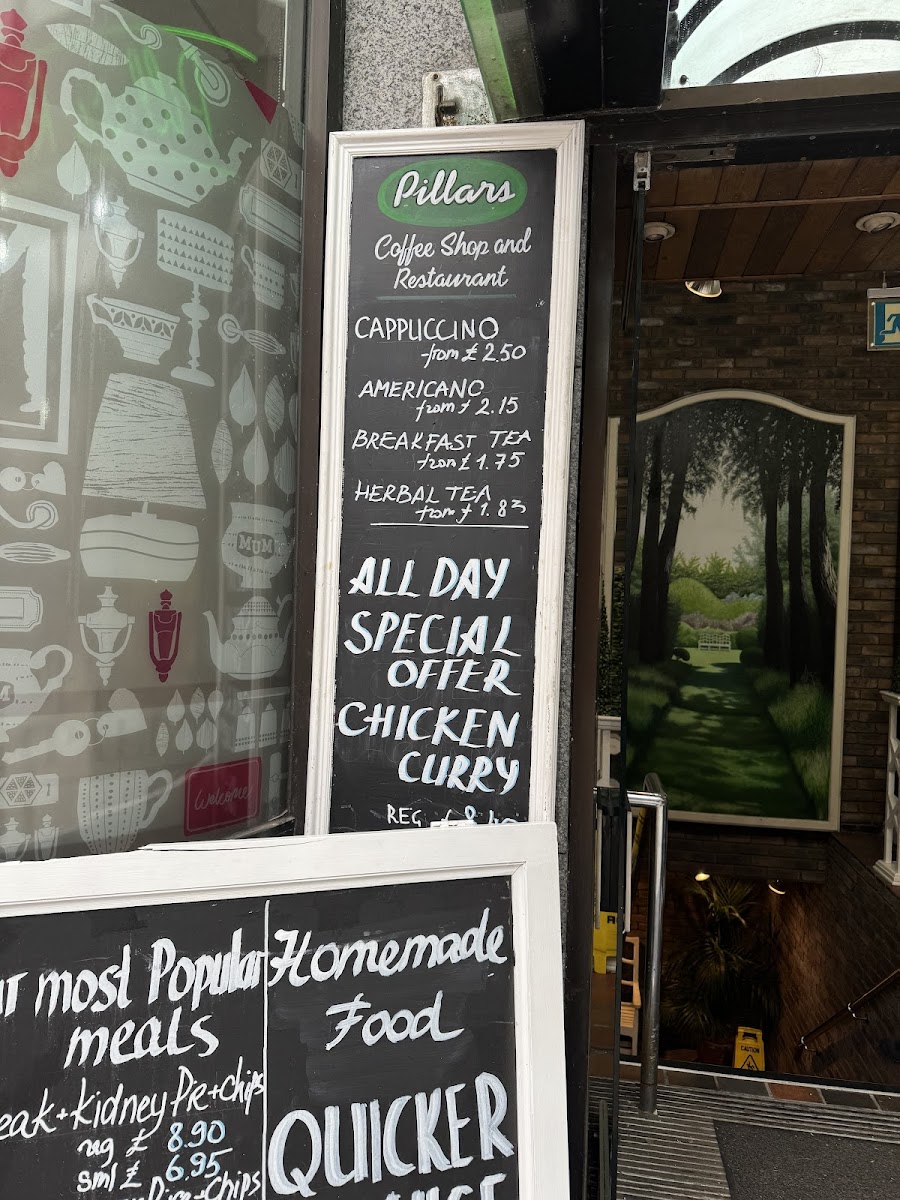 Pillars
Coffee Shop and
Restaurant
CAPPUCCINO
from £ 2.50
AMERICANO
from £ 2.15
BREAKFAST TEA
from £ 1.75
HERBAL TEA
from £ 1.83
ALL DAY
SPECIAL
OFFER
CHICKEN
CURRY
REG
most Popular
meals
+kidney Pie+chips
reg £ 8.90
sml £ 6.95
+Chips
Homemade
Food
QUICKER
MUM
Welcome!
CAUTION